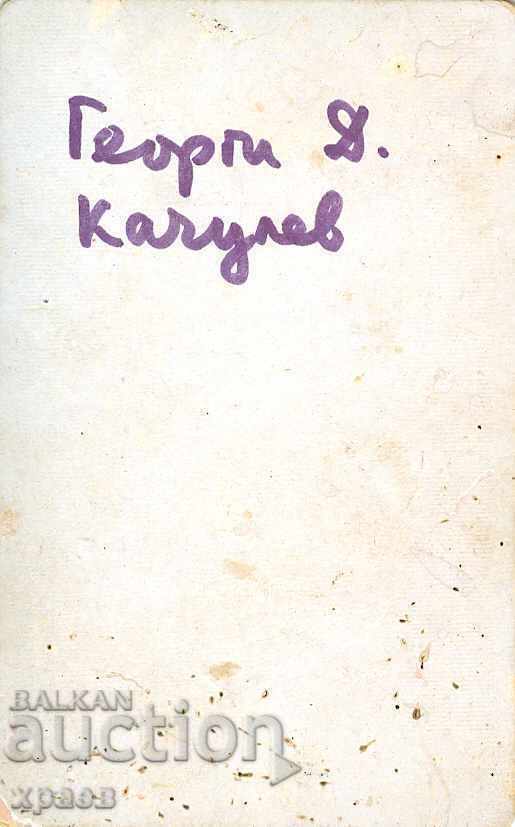 Георги Д.
Качулев
BALKAN
auction
храсв